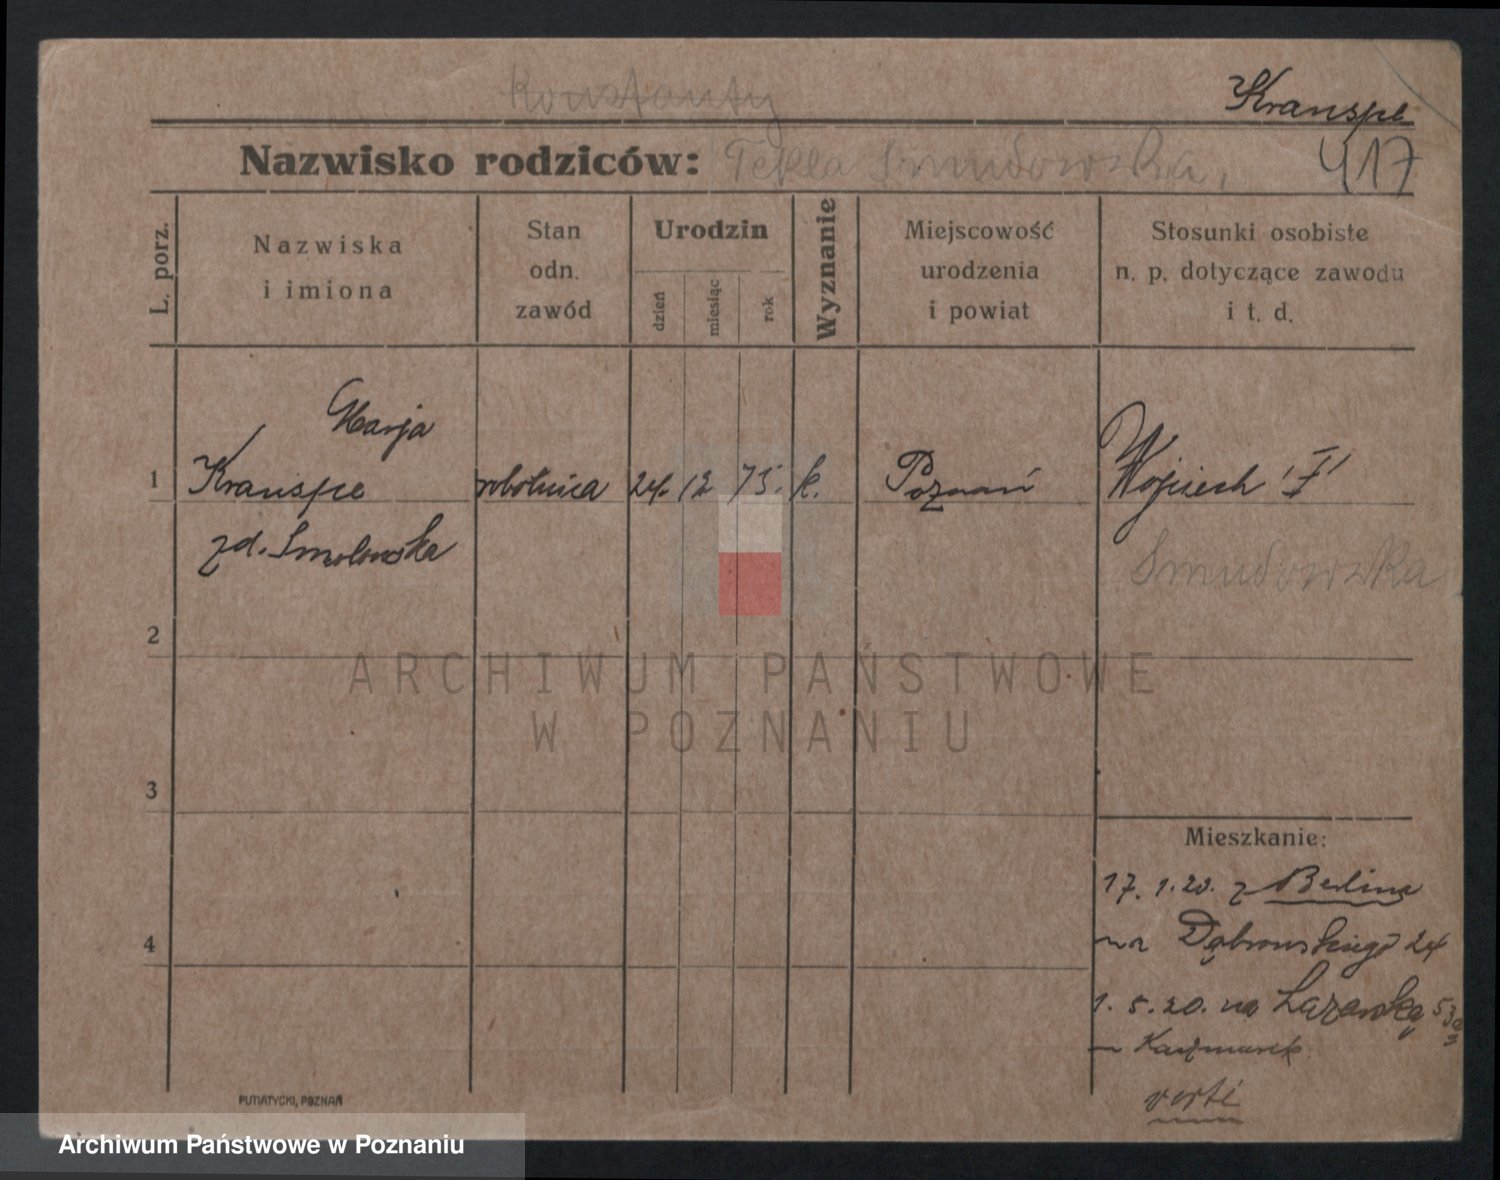 Konstanty
Kranspe
Nazwisko rodziców: Tekla Smudowska,
417
L. porz.
Nazwiska
i imiona
Stan
odn.
zawód
Urodzin
dzień
miesiąc
rok
Wyznanie
Miejscowość
urodzenia
i powiat
Stosunki osobiste
n. p. dotyczące zawodu
i t. d.
Marja
1 Kranspe robotnica 24. 12 75. k. Poznań Wojciech
zd. Smolowska
Smudowska
2
ARCHIWUM PAŃSTWOWE
W POZNANIU
3
Mieszkanie:
17. 1. 20. z Berlina
4
na Dąbrowskiego 24
1. 5. 20. na Łazarską 53a
Kaczmarek
verte
PUTIATYCKI, POZNAŃ
Archiwum Państwowe w Poznaniu